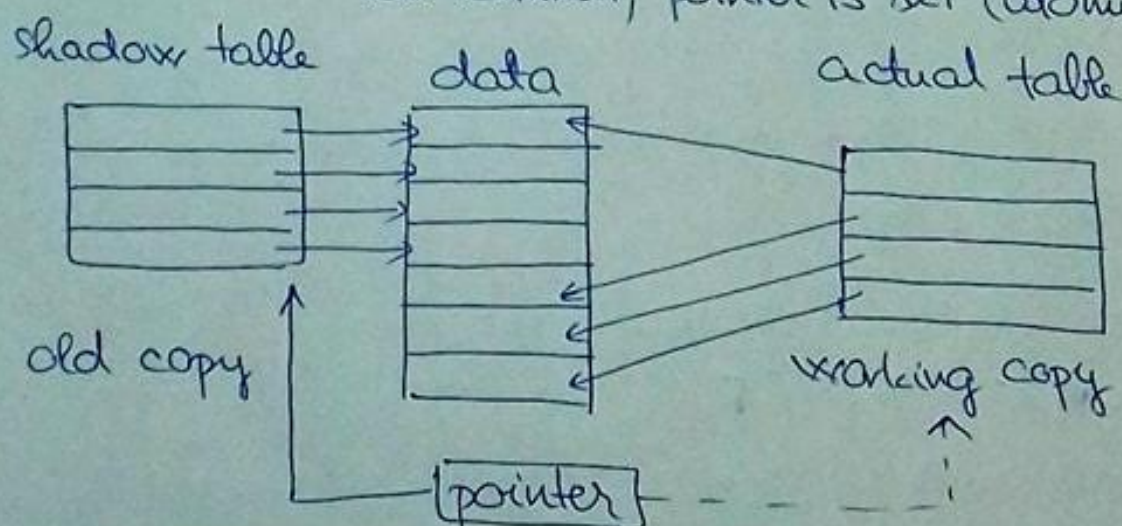 pointer is set
shadow table
data
actual table
old copy
working copy
pointer